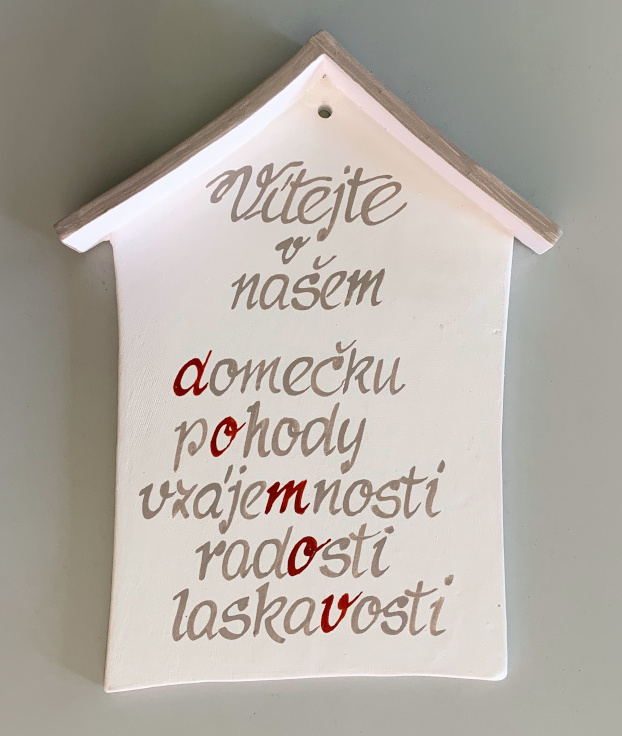 Vítejte
v
našem
domečku
pohody
vzájemnosti
radosti
laskavosti